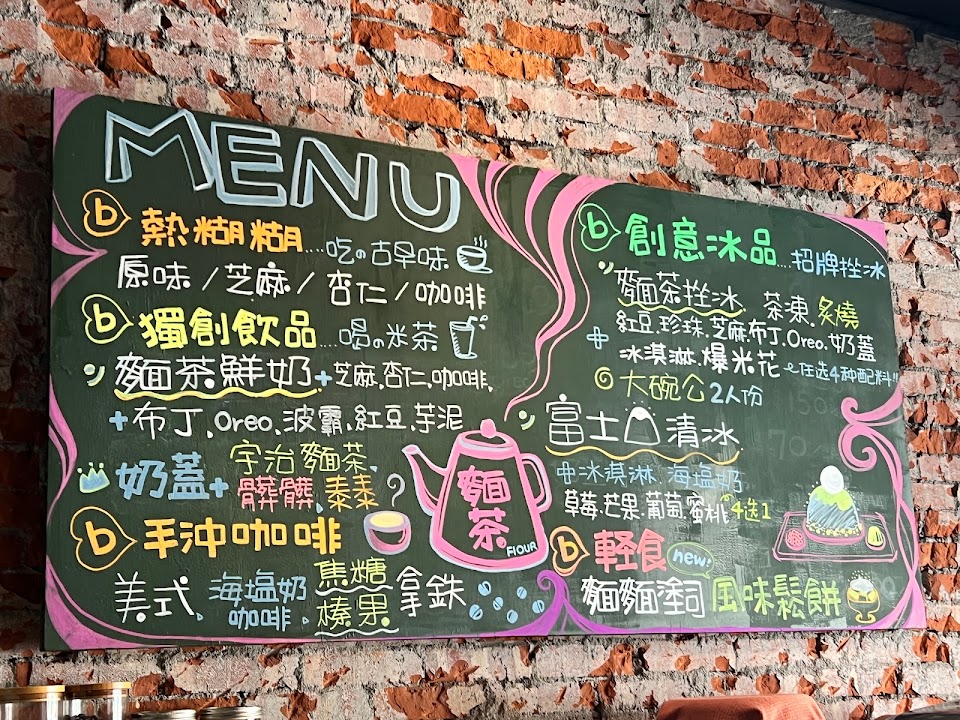 MENU
b 熱糊糊....吃の古早味
原味/芝麻/杏仁/咖啡
b 獨創飲品....喝の米茶
麵茶鮮奶+芝麻.杏仁.咖啡.
+布丁.Oreo.波霸.紅豆.芋泥
奶蓋+宇治麵茶、
髒髒.泰泰
b 手沖咖啡
美式、海塩奶咖啡、焦糖榛果拿鉄
麵茶
FlOUR
b 創意冰品....招牌挫冰
麵茶挫冰 茶凍.炙燒
紅豆.珍珠.芝麻.布丁.Oreo.奶蓋
冰淇淋.爆米花 任选4种配料!!
大碗公2人份
富士山清冰
冰淇淋.海塩奶
草莓.芒果.葡萄.蜜桃 4选1
b 軽食 new!
麵麵 風味鬆餅